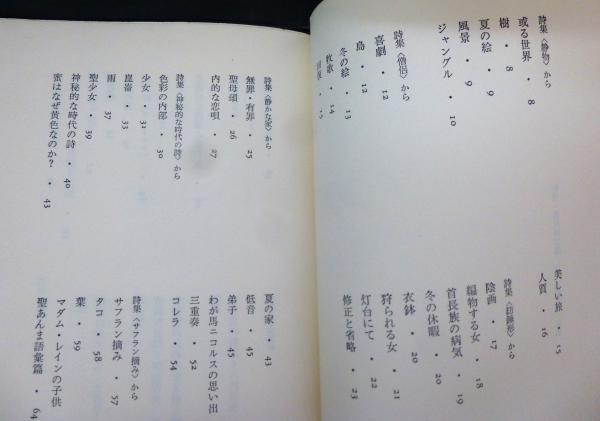 詩集〈静物〉から
或る世界・8
樹・8
夏の絵・9
風景・9
ジャングル・10
詩集〈僧侶〉から
喜劇・12
島・12
冬の絵・13
牧歌・14
15
美しい旅・15
人質・16
詩集〈紡錘形〉から
陰画・17
編物する女・18
首長族の病気・19
冬の休暇・20
衣鉢・20
狩られる女・21
灯台にて・22
修正と省略・23
詩集〈静かな家〉から
無罪・有罪・25
聖母頌・26
内的な恋唄・27
詩集〈神秘的な時代の詩〉から
色彩の内部・30
少女・31
崑崙・33
雨・37
聖少女・39
神秘的な時代の詩・40
蜜はなぜ黄色なのか?・43
夏の家・43
低音・45
弟子・45
わが馬ニコルスの思い出
三重奏・52
コレラ・54
詩集〈サフラン摘み〉から
サフラン摘み・57
タコ・58
葉・59
マダム・レインの子供
聖あんま語彙篇・64